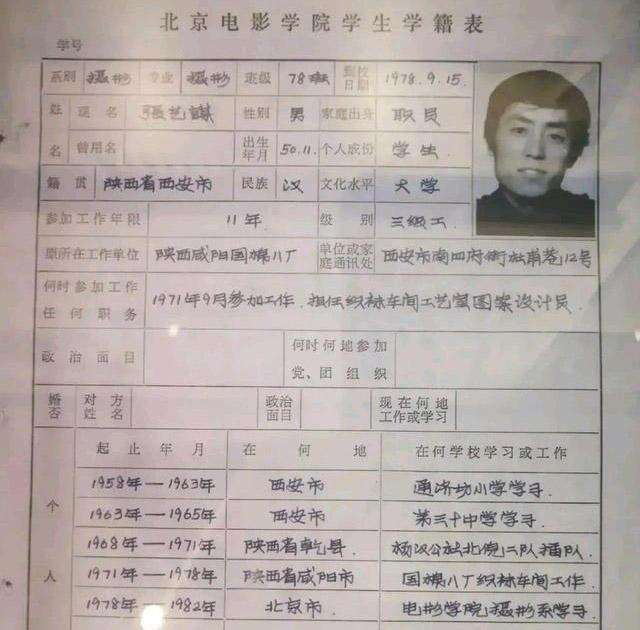 北京电影学院学生学籍表
学号
系别 摄影 专业 摄影 班级 78班 到校日期 1978.9.15.
姓名 现名 張艺謀 性别 男 家庭出身 职员
曾用名 出生年月 50.11. 个人成份 学生
籍贯 陕西省西安市 民族 汉 文化水平 大学
参加工作年限 11年 级别 三级工
原所在工作单位 陕西咸阳国棉八厂 单位或家庭通讯处 西安市南四府街松甫巷12号
何时参加工作任何职务 1971年9月参加工作.担任织袜车间工艺室图案设计员.
政治面目 何时何地参加党、团组织
婚否 对方姓名 政治面目 现在何地工作或学习
个人
起止年月 在何地 在何学校学习或工作
1958年—1963年 西安市 通济坊小学学习.
1963年—1965年 西安市 第三十中学学习.
1968年—1971年 陕西省乾县. 杨汉公社北倪二队插队.
1971年—1978年 陕西省咸阳市 国棉八厂织袜车间工作.
1978年—1982年 北京市. 电影学院摄影系学习.